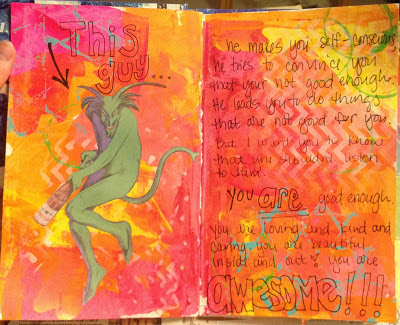 This
guy...
he makes you self-conscious,
he tries to convince you
that your not good enough.
He leads you to do things
that are not good for you.
But I want you to know
that you shouldn't listen
to him.
you are good enough.
you are loving and kind and
caring you are beautiful
inside and out you are
awesome!!!